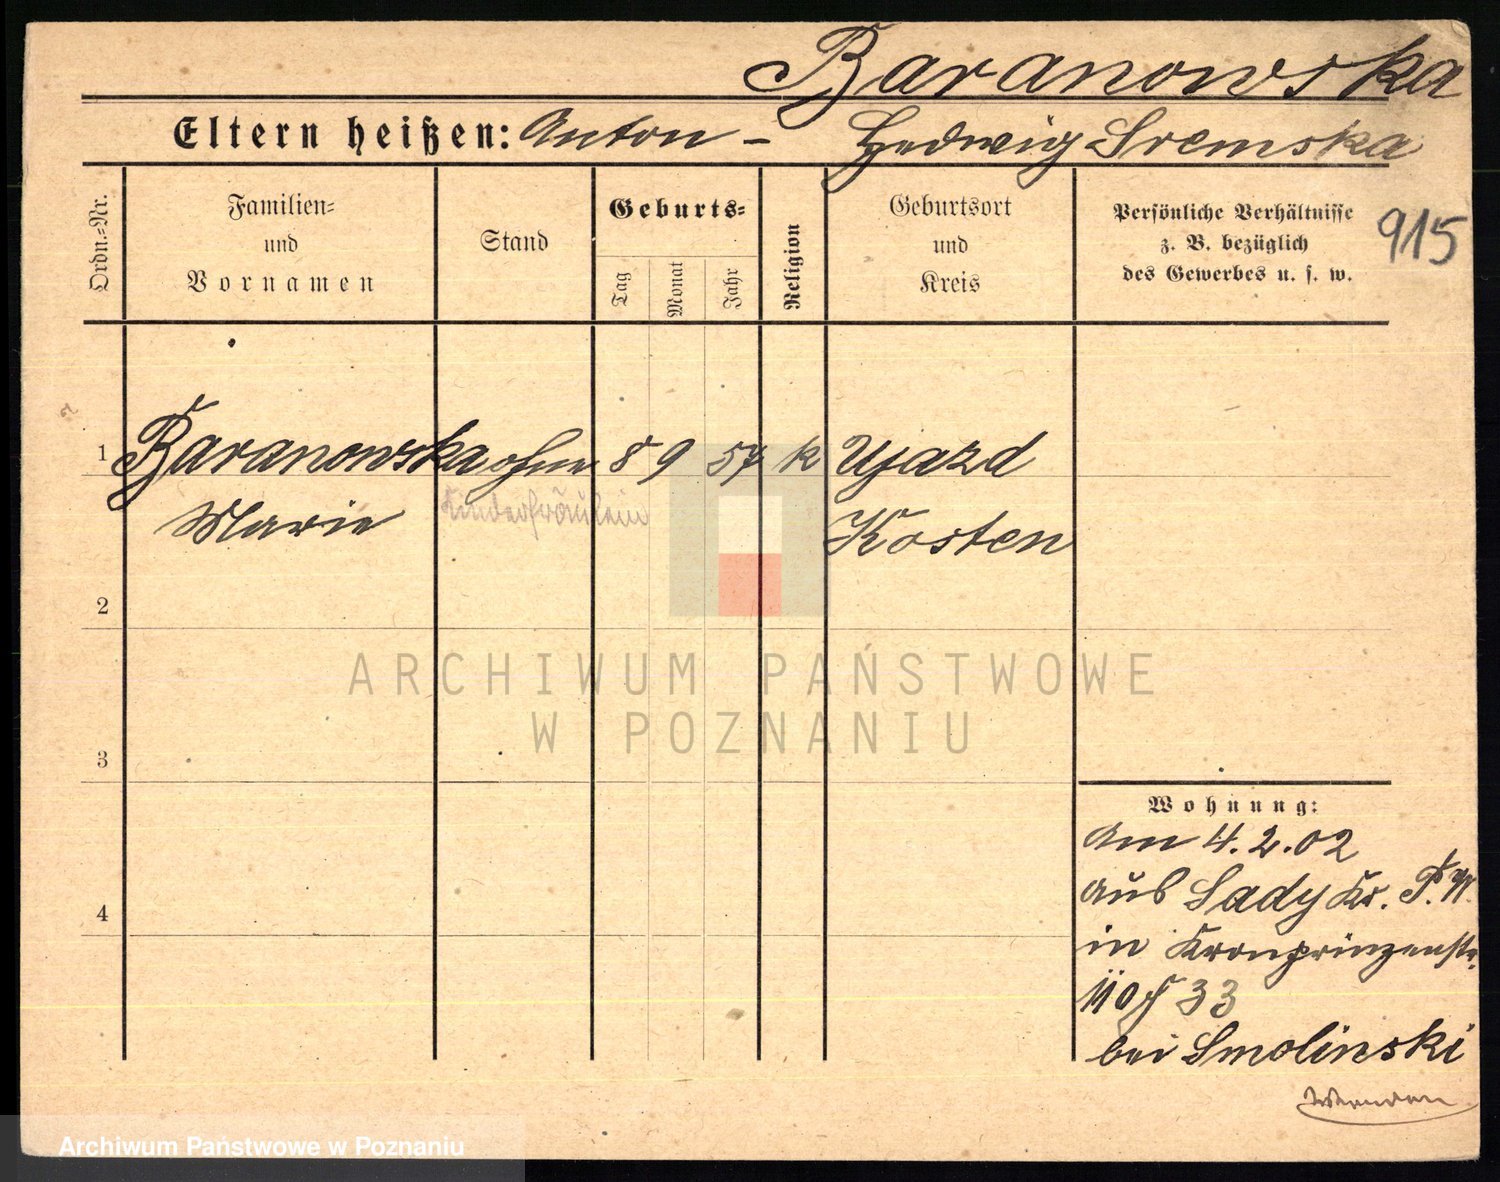 Baranowska
Eltern heißen: Anton – Hedwig Sremska
Ordn.=Nr.
Familien=
und
Vornamen
Stand
Geburts=
Tag
Monat
Jahr
Religion
Geburtsort
und
Kreis
Persönliche Verhältnisse
z. B. bezüglich
des Gewerbes u. s. w.
915
1 Baranowska ohne 8 9 57 k Ujazd
Marie Kinderfräulein Kosten
2
3
4
ARCHIWUM PAŃSTWOWE
W POZNANIU
Wohnung:
Am 4.2.02
aus Sady Kr. P. W.
in Kronprinzenstr.
33
bei Smolinski
Wenden
Archiwum Państwowe w Poznaniu